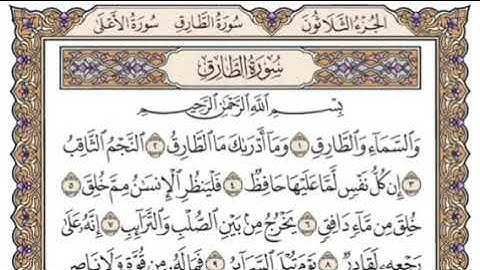 الجزء الثلاثون سورة الطارق سورة الأعلى
سورة الطارق
بِسْمِ اللَّهِ الرَّحْمَٰنِ الرَّحِيمِ
وَالسَّمَاءِ وَالطَّارِقِ ١ وَمَا أَدْرَىٰكَ مَا الطَّارِقُ ٢ النَّجْمُ الثَّاقِبُ
٣ إِن كُلُّ نَفْسٍ لَّمَّا عَلَيْهَا حَافِظٌ ٤ فَلْيَنظُرِ الْإِنسَٰنُ مِمَّ خُلِقَ ٥
خُلِقَ مِن مَّاءٍ دَافِقٍ ٦ يَخْرُجُ مِنۢ بَيْنِ الصُّلْبِ وَالتَّرَائِبِ ٧ إِنَّهُ عَلَىٰ
رَجْعِهِ لَقَادِرٌ ٨ يَوْمَ تُبْلَى السَّرَائِرُ ٩ فَمَا لَهُ مِن قُوَّةٍ وَلَا نَاصِرٍ